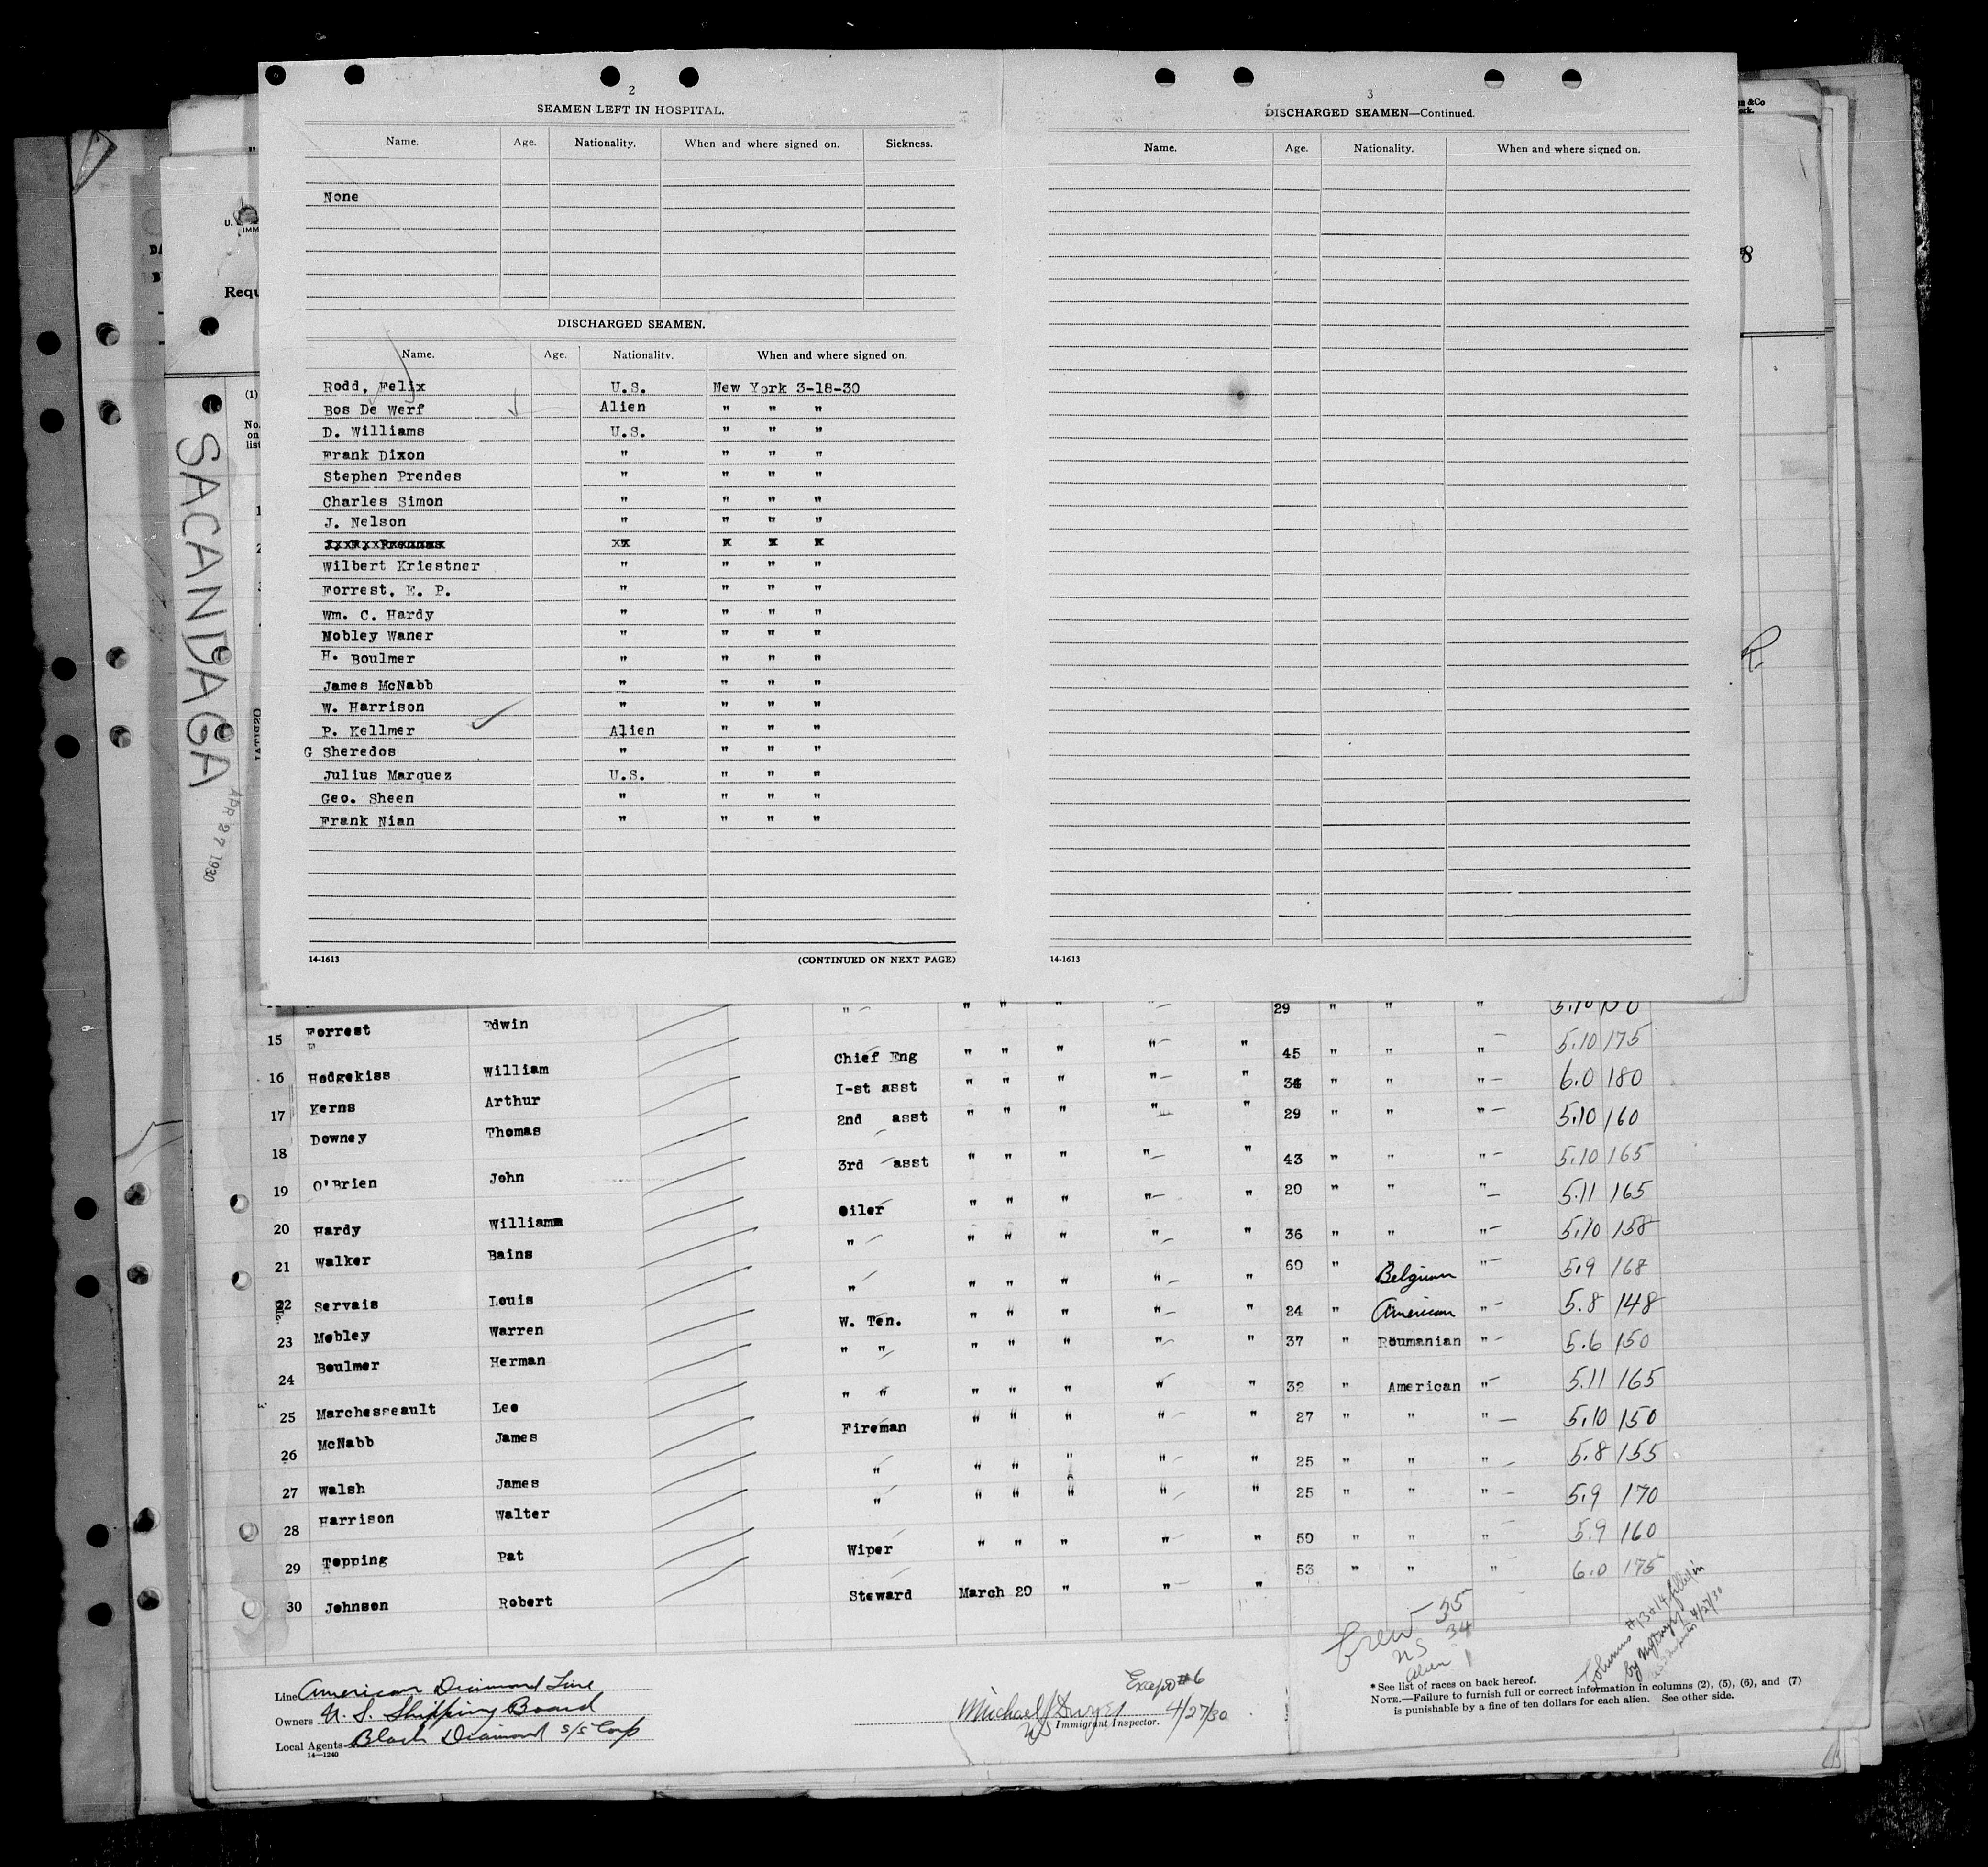 2
SEAMEN LEFT IN HOSPITAL.
Name. Age. Nationality. When and where signed on. Sickness.
None
DISCHARGED SEAMEN.
Name. Age. Nationality. When and where signed on.
Rodd, Felix U.S. New York 3-18-30
Bos De Werf Alien " " "
D. Williams U.S. " " "
Frank Dixon " " " "
Stephen Prendes " " " "
Charles Simon " " " "
J. Nelson " " " "
Wilbert Kriestner " " " "
Forrest, E. P. " " " "
Wm. C. Hardy " " " "
Mobley Waner " " " "
H. Boulmer " " " "
James McNabb " " " "
W. Harrison " " " "
P. Kellmer Alien " " "
G Sheredos " " " "
Julius Marquez U.S. " " "
Geo. Sheen " " " "
Frank Nian " " " "
14-1613 (CONTINUED ON NEXT PAGE)
3
DISCHARGED SEAMEN—Continued.
Name. Age. Nationality. When and where signed on.
14-1613
SACANDAGA
APR 27 1930
Requ
(1)
No.
on
list
8
R.
" " " " " 29 " " " 5.10
15 Forrest Edwin Chief Eng " " " " " 45 " " " 5.10 175
16 Hodgekiss William I-st asst " " " " " 34 " " " 6.0 180
17 Kerns Arthur 2nd asst " " " " " 29 " " " 5.10 160
18 Downey Thomas 3rd asst " " " " " 43 " " " 5.10 165
19 O'Brien John Oiler " " " " " 20 " " " 5.11 165
20 Hardy William " " " " " " 36 " " " 5.10 158
21 Walker Bains " " " " " " 60 " Belgium " 5.9 168
22 Servais Louis W. Ten. " " " " " 24 " American " 5.8 148
23 Mobley Warren " " " " " " " 37 " Roumanian " 5.6 150
24 Boulmer Herman " " " " " " " 32 " American " 5.11 165
25 Marchesseault Leo Fireman " " " " " 27 " " " 5.10 150
26 McNabb James " " " " " " 25 " " " 5.8 155
27 Walsh James " " " " " " 25 " " " 5.9 170
28 Harrison Walter Wiper " " " " " 50 " " " 5.9 160
29 Topping Pat Steward March 20 " " " 53 " " " 6.0 175
30 Johnson Robert
Crew 35
US 34
Alien 1
Columns #13 & 14 filled in
by
4/27/30
Line American Diamond Line
Owners U. S. Shipping Board
Local Agents Black Diamond S/S Corp
14—1240
#6
Michael J Dwyer 4/27/30
Immigrant Inspector.
* See list of races on back hereof.
NOTE.—Failure to furnish full or correct information in columns (2), (5), (6), and (7)
is punishable by a fine of ten dollars for each alien. See other side.